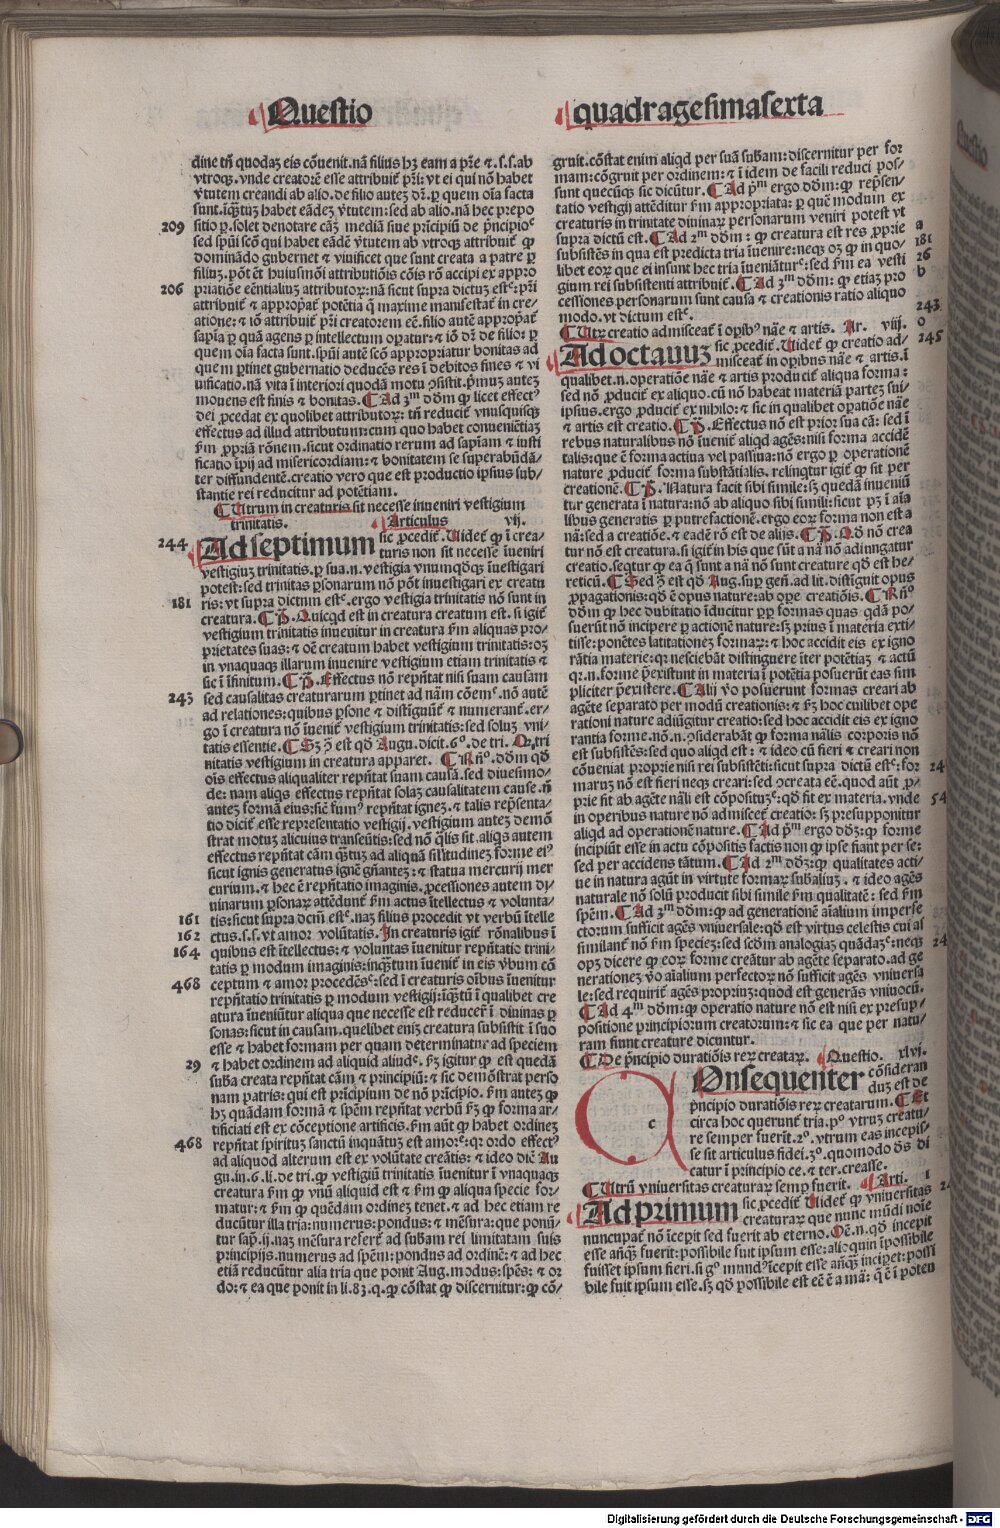 Questio
quadragesimasexta
dine tñ quodaʒ eis cõvenit. nã filius hʒ eam a pr̃e ⁊ .s.s. ab
vtroqʒ. vnde creatorẽ esse attribuit͛ pr̃i: vt ei qui nõ habet
v̓tutem creandi ab alio. de filio auteʒ dr̃. ꝑ quem oĩa facta
sunt. ĩqʒ̃tuʒ habet eãdeʒ v̓tutem: sed ab alio. nã hec prepo
209
sitio ꝑ. solet denotare cãʒ mediã siue prĩcipiũ de pn̓cipio
sed spũi scõ qui habet eãdẽ v̓tutem ab vtroqʒ attribuit͛ ꝙ
dominãdo gubernet ⁊ viuificet que sunt creata a patre ꝑ
filiuʒ. põt ẽt huiusmõi attributiõis cõis rõ accipi ex appro
206
priatiõe eẽntialiuʒ attributoꝝ: nã sicut supra dictuʒ est: pr̃i
attribuit͛ ⁊ appropat͛ potẽtia q̃ maxime manifestat͛ in cre/
atione: ⁊ iõ attribuit͛ pr̃i creatorem eẽ. filio autẽ appropat͛
sapĩa ꝑ quã agens ꝑ intellectum oꝑatur: ⁊ iõ dr̃ de filio: ꝑ
quem oĩa facta sunt. spũi autẽ scõ appropriatur bonitas ad
queꝫ ꝑtinet gubernatio deducẽs res ĩ debitos fines ⁊ vi
uificatio. nã vita ĩ interiori quodã motu ꝯsistit. pꝛimuʒ auteʒ
mouens est finis ⁊ bonitas. ¶ Ad 3ᵐ dõm ꝙ licet effectꝰ
dei ꝓcedat ex quolibet attributoꝝ: tñ reducit͛ vnusquisqʒ
effectus ad illud attributum: cum quo habet conuenẽtiaʒ
ẜm ꝓpriã rõnem. sicut ordinatio rerum ad sapĩam ⁊ iusti
ficatio ĩpij ad misericordiam: ⁊ bonitatem se superabũdã/
ter diffundentẽ. creatio vero que est productio ipsius sub/
stantie rei reducitur ad potẽtiam.
¶ Utrum in creaturis sit necesse inueniri vestigium
trinitatis. ¶ Articulus vij.
244
Ad septimum sic ꝓcedit͛. Uidet͛ ꝙ ĩ crea/
turis non sit necesse ĩueniri
vestigiuʒ trinitatis. ꝑ sua .n. vestigia vnumqd̃qʒ ĩuestigari
potest: sed trinitas ꝑsonarum nõ põt inuestigari ex creatu
181
ris: vt supra dictum est. ergo vestigia trinitatis nõ sunt in
creatura. ¶ P̃. Quicqd est in creatura creatum est. si igit͛
vestigium trinitatis inuenitur in creatura ẜm aliquas pro/
prietates suas: ⁊ oẽ creatum habet vestigium trinitatis: oʒ
in vnaquaqʒ illarum inuenire vestigium etiam trinitatis ⁊
sic ĩ ĩfinitum. ¶ P̃. Effectus nõ repñtat nisi suam causam
243
sed causalitas creaturarum ꝑtinet ad nãm cõem. nõ autẽ
ad relationes: quibus ꝑsone ⁊ distĩguũt͛ ⁊ numerant͛. er/
go ĩ creatura nõ ĩuenit͛ vestigium trinitatis: sed soluʒ vni/
tatis essentie. ¶ Sʒ ꝯ est qd̃ Augu. dicit .6. de tri. Qꝛ tri
nitatis vestigium in creatura apparet. ¶ Rñ. dõm qd̃
oĩs effectus aliqualiter repñtat suam causã. sed diuesimo/
de: nam aliqs effectus repñtat solaʒ causalitatem cause. ñ
auteʒ formã eiꝰ: sicut fumꝰ repñtat igneʒ. ⁊ talis repñsenta/
tio dicit͛ esse representatio vestigij. vestigium auteʒ demõ
strat motuʒ alicuius transeũtis: sed nõ q̃lis sit. aliqs autem
effectus repñtat cãm qʒ̃tuʒ ad aliquã sil̃itudineʒ forme eiꝰ
sicut ignis generatus ignẽ gñanteʒ: ⁊ statua mercurij mer
curium. ⁊ hec ẽ repñtatio imaginis. ꝓcessiones autem di/
uinarum ꝑsonaꝝ attẽdunt͛ ẜm actus ĩtellectus ⁊ volunta/
161
tis: sicut supra dcm̃ est. naʒ filius procedit vt verbũ ĩtelle
162
ctus. s.s. vt amor volũtatis. In creaturis igit͛ rõnalibus ĩ
164
quibus est ĩtellectus: ⁊ voluntas ĩuenitur repñtatio trini/
tatis ꝑ modum imaginis: inqʒ̃tum ĩuenit͛ in eis v̓bum cõ
468
ceptum ⁊ amor procedẽs: sed ĩ creaturis oĩbus ĩuenitur
repñtatio trinitatis ꝑ modum vestigij: ĩqʒ̃tũ ĩ qualibet cre
atura ĩueniũtur aliqua que necesse est reducer̃ ĩ diuinas ꝑ
sonas: sicut in causam. quelibet eniʒ creatura subsistit ĩ suo
esse ⁊ habet formam per quam determinatur ad speciem
29
⁊ habet ordinem ad aliquid aliud. ẜʒ igitur ꝙ est quedã
sub̃a creata repñtat cãm ⁊ principiũ: ⁊ sic demõstrat perso
nam patris: qui est prĩcipium de nõ prĩcipio. ẜm auteʒ ꝙ
hʒ quãdam formã ⁊ spẽm repñtat verbũ ẜʒ ꝙ forma ar/
tificiati est ex cõceptione artificis. ẜm aũt ꝙ habet ordineʒ
468
repñtat spirituʒ sanctũ inquãtuʒ est amor: qꝛ ordo effectꝰ
ad aliquod alterum est ex volũtate creãtis: ⁊ ideo dic̃ Au
gu. in .6. li. de tri. ꝙ vestigiũ trinitatis ĩuenitur ĩ vnaquaqʒ
creatura ẜm ꝙ vnũ aliquid est ⁊ ẜm ꝙ aliqua specie for/
matur: ⁊ ẜm ꝙ quẽdam ordineʒ tenet. ⁊ ad hec etiam re
ducũtur illa tria: numerus: pondus: ⁊ mẽsura: que ponũ/
tur sap̃. ij. naʒ mẽsura refert͛ ad sub̃am rei limitatam suis
principijs. numerus ad spẽm: pondus ad ordinẽ: ⁊ ad hec
etiã reducũtur alia tria que ponit Aug. modus: spẽs: ⁊ oꝛ
do: ⁊ ea que ponit in li. 83. q. ꝙ cõstat ꝙ discernitur: ꝙ cõ/
gruit. cõstat enim aliqd per suã sub̃am: discernitur per for
mam: cõgruit per ordinem: ⁊ ĩ idem de facili reduci pos/
sunt quecũqʒ sic dicũtur. ¶ Ad p̃ᵐ ergo dõm: ꝙ repñsen/
tatio vestigij attẽditur ẜm appropriata: ꝑ quẽ modum ex
creaturis in trinitate diuinaꝝ personarum veniri potest vt
supra dictũ est. ¶ Ad 2ᵐ dõm: ꝙ creatura est res ꝓprie
a
181
subsistẽs in qua est predicta tria ĩuenire: neqʒ oʒ ꝙ in quo/
26
libet eoꝝ que ei insunt hec tria ĩueniãtur: sed ẜm ea vesti
b
gium rei subsistenti attribuit͛. ¶ Ad 3ᵐ dõm: ꝙ etiaʒ pro
cessiones personarum sunt causa ⁊ creationis ratio aliquo
243
modo. vt dictum est.
o
¶ Utꝝ creatio admisceat͛ ĩ oꝑibꝰ nãe ⁊ artis. Ar. viij.
245
Ad octauuʒ sic ꝓcedit͛. Uidet͛ ꝙ creatio ad/
misceat͛ in oꝑibus nãe ⁊ artis. ĩ
qualibet .n. oꝑatiõne nãe ⁊ artis producit͛ aliqua forma:
sed nõ ꝓducit͛ ex aliquo. cũ nõ habeat materiã parteʒ sui/
ipsius. ergo ꝓducit͛ ex nihilo: ⁊ sic in qualibet oꝑatiõe nãe
⁊ artis est creatio. ¶ P̃. Effectus nõ est prior sua cã: sed ĩ
rebus naturalibus nõ ĩuenit͛ aliqd agẽs: nisi forma accidẽ
talis: que ẽ forma actiua vel passiua: nõ ergo ꝑ operationẽ
nature ꝓducit͛ forma substãtialis. relinqtur igit͛ ꝙ sit per
creationẽ. ¶ P̃. Natura facit sibi simile: sʒ quedã inueniũ
tur generata ĩ natura: nõ ab aliquo sibi simili: sicut pʒ ĩ aĩa
libus generatis ꝑ putrefactionẽ. ergo eoꝝ forma non est a
nã: sed a creatiõe. ⁊ eadẽ rõ est de alijs. ¶ P̃. Qd̃ nõ crea
tur nõ est creatura. si igit͛ in his que sũt a nã nõ adiungatur
creatio. seqtur ꝙ ea q̃ sunt a nã nõ sunt creature qd̃ est he/
reticũ. ¶ Sed ꝯ est qd̃ Aug. suꝑ geñ. ad lit. distĩguit opus
ꝓpagationis: qd̃ ẽ opus nature: ab oꝑe creatiõis. ¶ Rñ.
dõm ꝙ hec dubitatio ĩducitur ꝓp̃ formas quas qdã po/
suerũt nõ incipere ꝑ actionẽ nature: sʒ prius ĩ materia exti/
tisse: ponẽtes latitationeʒ formaꝝ: ⁊ hoc accidit eis ex igno
rãtia materie: qꝛ nesciebãt distinguere ĩter potẽtiaʒ ⁊ actũ
qꝛ .n. forme p̃existunt in materia ĩ potẽtia posuerũt eas sim
pliciter p̃existere. ¶ Alij v̓o posuerunt formas creari ab
agẽte separato per modũ creationis: ⁊ ẜʒ hoc cuilibet ope
rationi nature adiũgitur creatio: sed hoc accidit eis ex igno
rantia forme. nõ .n. ꝯsiderabãt ꝙ forma nãlis corporis nõ
est subsistẽs: sed quo aliqd est: ⁊ ideo cũ fieri ⁊ creari non
cõueniat proprie nisi rei subsistẽti: sicut supra dictũ est: for
24
maruʒ nõ est fieri neqʒ creari: sed ꝯcreata eẽ. quod aũt ꝓ/
prie fit ab agẽte nãli est cõposituꝫ: qd̃ fit ex materia. vnde
54
in operibus nature nõ admisceat͛ creatio: sʒ presupponitur
aliqd ad operationẽ nature. ¶ Ad p̃ᵐ ergo dõʒ: ꝙ forme
incipiũt esse in actu cõpositis factis non ꝙ ipse fiant per se:
sed per accidens tãtum. ¶ Ad 2ᵐ dõʒ: ꝙ qualitates acti/
ue in natura agũt in virtute formaꝝ sub̃aliuʒ. ⁊ ideo agẽs
naturale nõ solũ producit sibi simile ẜm qualitatẽ: sed ẜm
spẽm. ¶ Ad 3ᵐ dõm: ꝙ ad generationẽ aĩalium imperfe
ctorum sufficit agẽs vniuersale: qd̃ est virtus celestis cui as/
similant͛ nõ ẜm specieʒ: sed scdm̃ analogiaʒ quãdaʒ: neqʒ
24
opʒ dicere ꝙ eoꝝ forme creãtur ab agẽte separato. ad ge
nerationeʒ v̓o aĩalium perfectoꝝ nõ sufficit agẽs vniuersa
le: sed requirit͛ agẽs propriuʒ: quod est generãs vniuocũ.
¶ Ad 4ᵐ dõm: ꝙ operatio nature nõ est nisi ex presup/
positione principiorum creatorum: ⁊ sic ea que per natu/
ram fiunt creature dicuntur.
¶ De pn̓cipio duratiõis reꝝ creataꝝ. ¶ Questio. xlvj.
c
Onsequenter cõsideran
duʒ est de
pn̓cipio duratiõis reꝝ creatarum. ¶ Et
circa hoc querunt͛ tria. pº vtruʒ creatu/
re semper fuerĩt. 2º. vtrum eas incepis/
se sit articulus fidei. 3º. quomodo dr̃s di
catur ĩ principio ce. ⁊ ter. creasse.
¶ Utrũ vniuersitas creaturaꝝ semꝑ fuerit. ¶ Arti. i
Ad primum sic ꝓcedit͛ Uidet͛ ꝙ vniuersitas
creaturaꝝ que nunc mũdi noĩe
nuncupat͛ nõ ĩcepit sed fuerit ab eterno. Oẽ .n. qd̃ incepit
esse añqʒ̃ fuerit: possibile fuit ipsum esse: alioquin ĩpossibile
fuisset ipsum fieri. si gº mandꝰ ĩcepit esse añqʒ̃ inciꝑet: possi
bile fuit ipsum esse. sʒ qd̃ possibile est eẽ ẽ a mã: q̃ ẽ ĩ poten
Digitalisierung gefördert durch die Deutsche Forschungsgemeinschaft - DFG